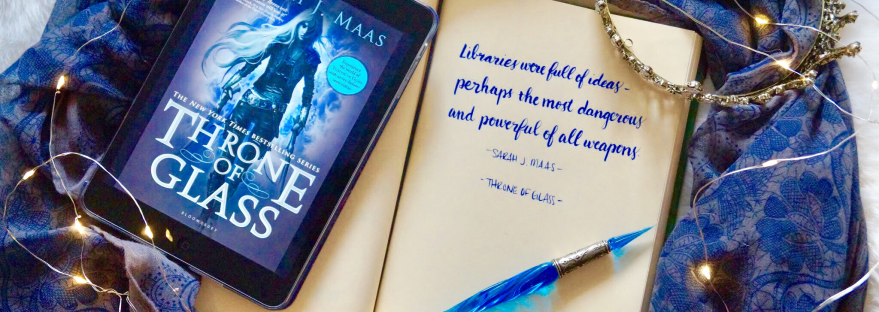 J. MAAS
THE NEW YORK TIMES BESTSELLING SERIES
THRONE
OF
GLASS
BLOOMSBURY
Libraries were full of ideas -
perhaps the most dangerous
and powerful of all weapons.
- SARAH J. MAAS -
- THRONE OF GLASS -